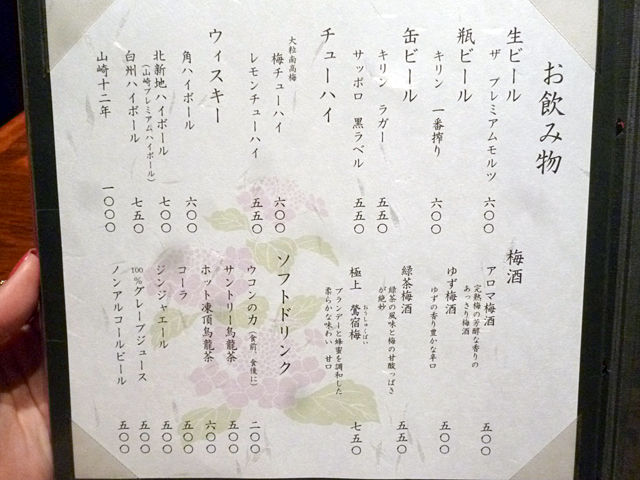 お飲み物
生ビール
ザ プレミアムモルツ 六〇〇
瓶ビール
キリン 一番搾り 六〇〇
缶ビール
キリン ラガー 五五〇
サッポロ 黒ラベル 五五〇
チューハイ
大粒南高梅
梅チューハイ 六〇〇
レモンチューハイ 五五〇
ウィスキー
角ハイボール 六〇〇
北新地ハイボール 七〇〇
(山崎プレミアムハイボール)
白州ハイボール 七五〇
山崎十二年 一〇〇〇
梅酒
アロマ梅酒 五〇〇
完熟梅の芳醇な香りの
あっさり梅酒
ゆず梅酒 五〇〇
ゆずの香り豊かな辛口
緑茶梅酒 五五〇
緑茶の風味と梅の甘酸っぱさ
が絶妙
極上 鶯宿梅 七五〇
おうしゅくばい
ブランデーと蜂蜜を調和した
柔らかな味わい 甘口
ソフトドリンク
ウコンの力(食前、食後に) 二〇〇
サントリー烏龍茶 五〇〇
ホット凍頂烏龍茶 六〇〇
コーラ 五〇〇
ジンジャエール 五〇〇
100%グレープジュース 五〇〇
ノンアルコールビール 五〇〇